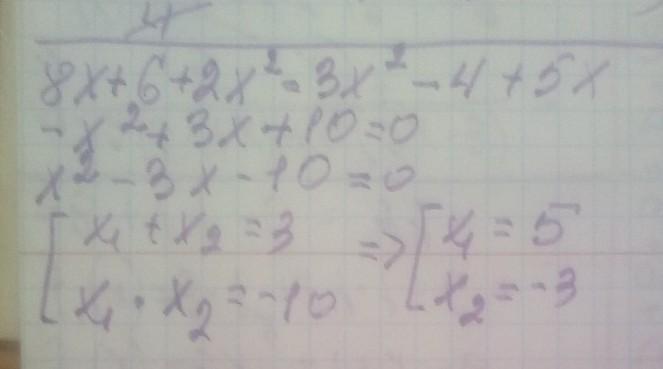 8x+6+2x²=3x²-4+5x
-x²+3x+10=0
x²-3x-10=0
[x₁+x₂=3 => [x₁=5
x₁·x₂=-10 x₂=-3